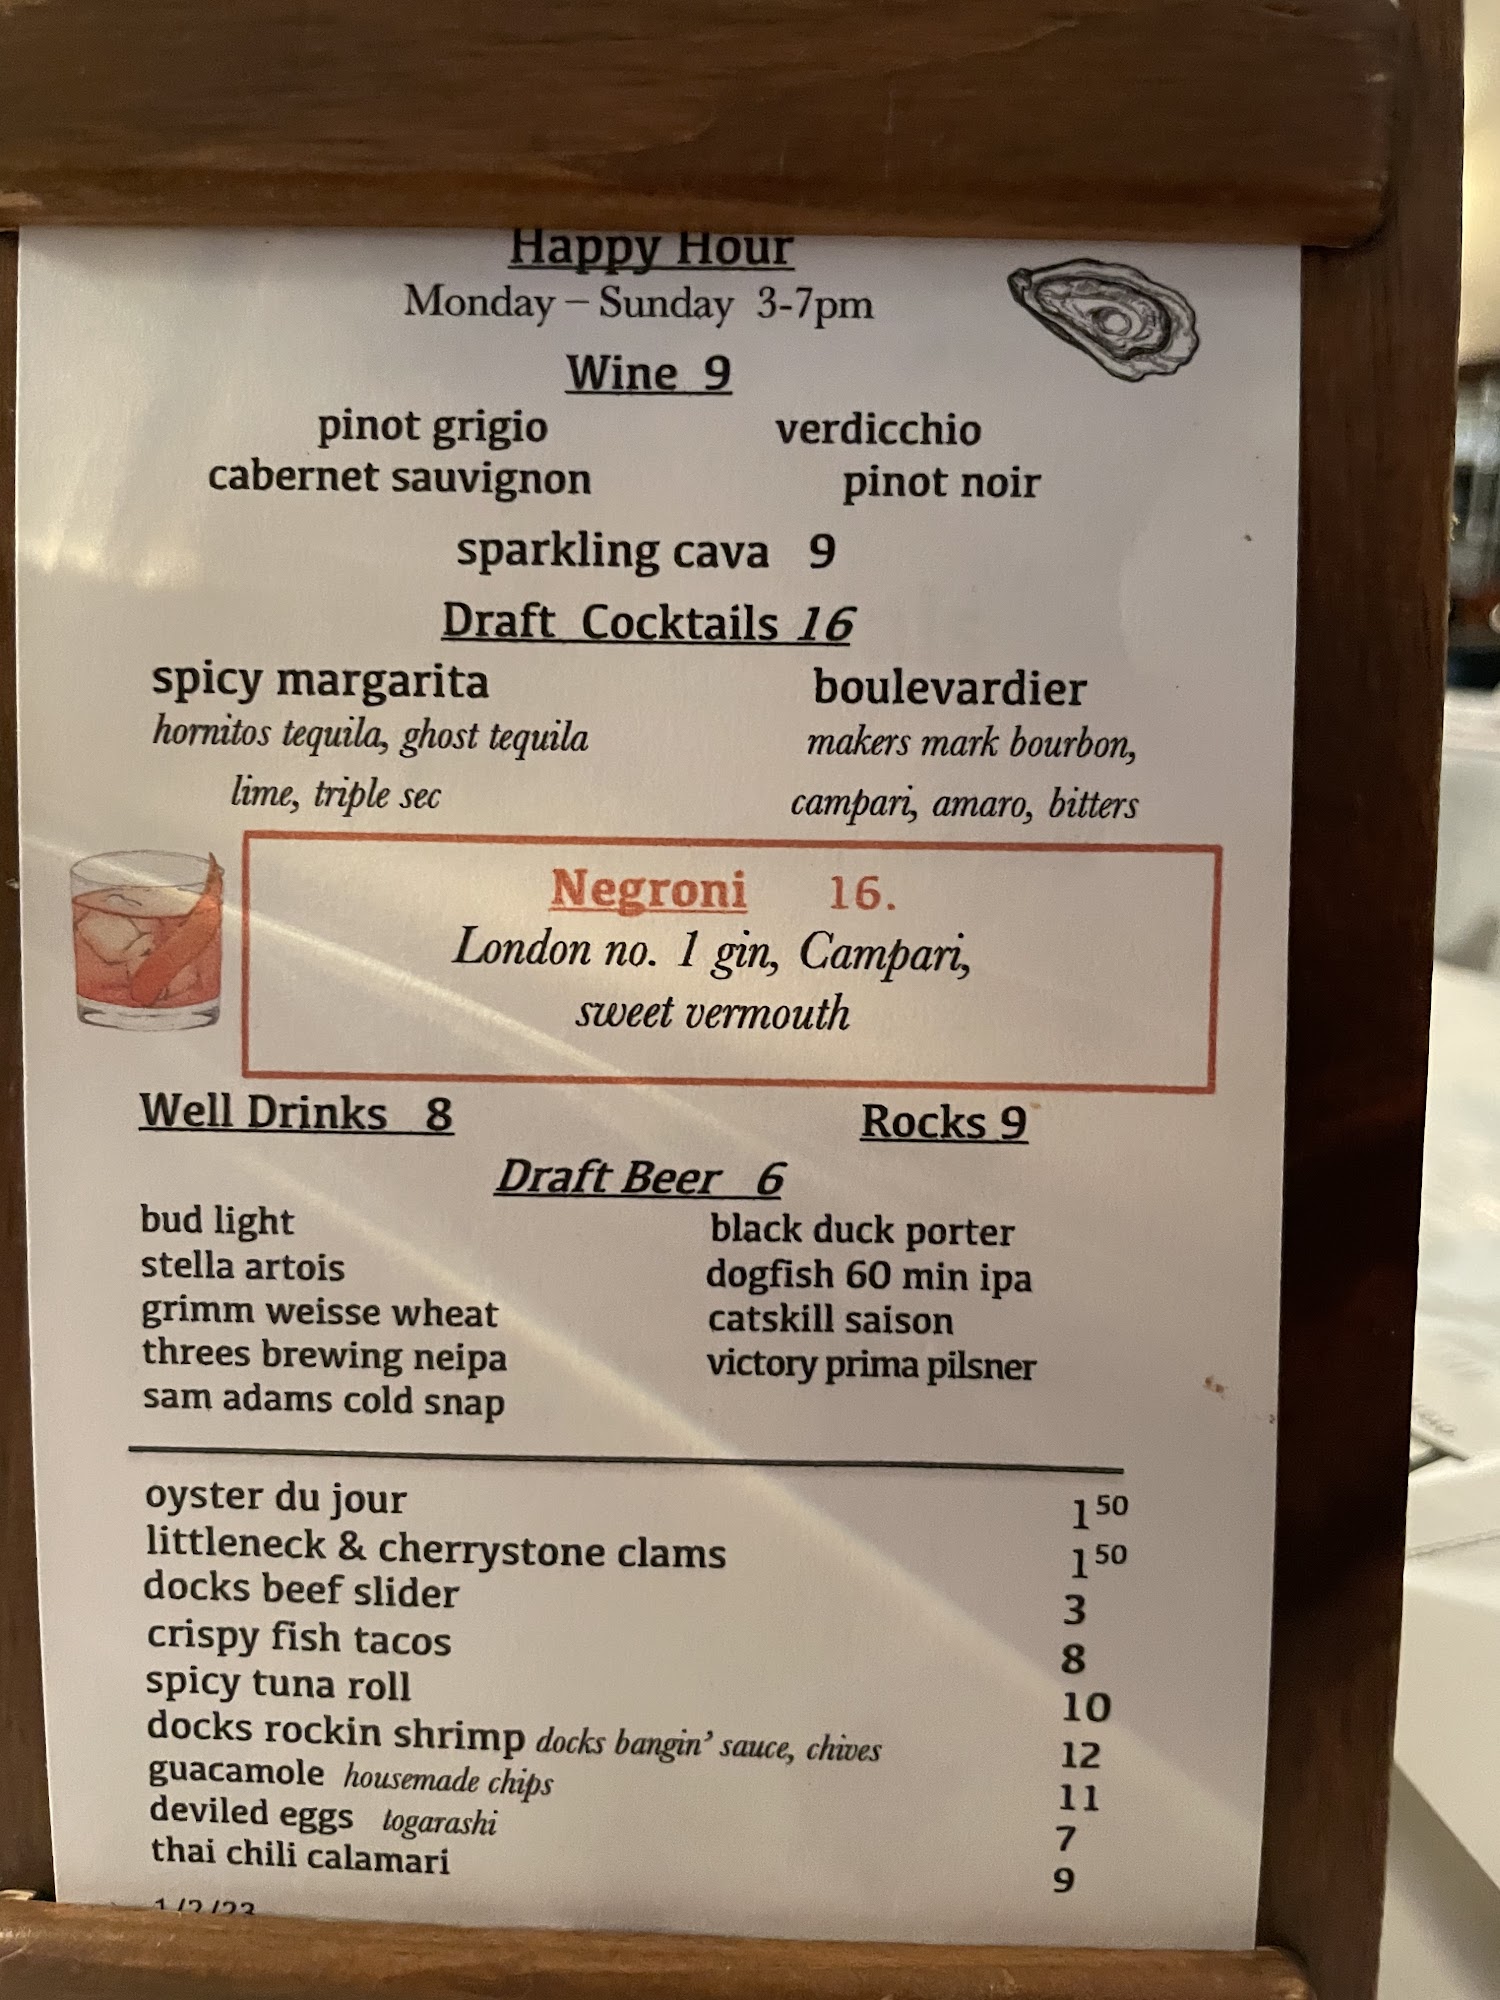 Happy Hour
Monday – Sunday 3-7pm
Wine 9
pinot grigio verdicchio
cabernet sauvignon pinot noir
sparkling cava 9
Draft Cocktails 16
spicy margarita boulevardier
hornitos tequila, ghost tequila makers mark bourbon,
lime, triple sec campari, amaro, bitters
Negroni 16.
London no. 1 gin, Campari,
sweet vermouth
Well Drinks 8 Rocks 9
Draft Beer 6
bud light black duck porter
stella artois dogfish 60 min ipa
grimm weisse wheat catskill saison
threes brewing neipa victory prima pilsner
sam adams cold snap
oyster du jour 1 50
littleneck & cherrystone clams 1 50
docks beef slider 3
crispy fish tacos 8
spicy tuna roll 10
docks rockin shrimp docks bangin’ sauce, chives 12
guacamole housemade chips 11
deviled eggs togarashi 7
thai chili calamari 9